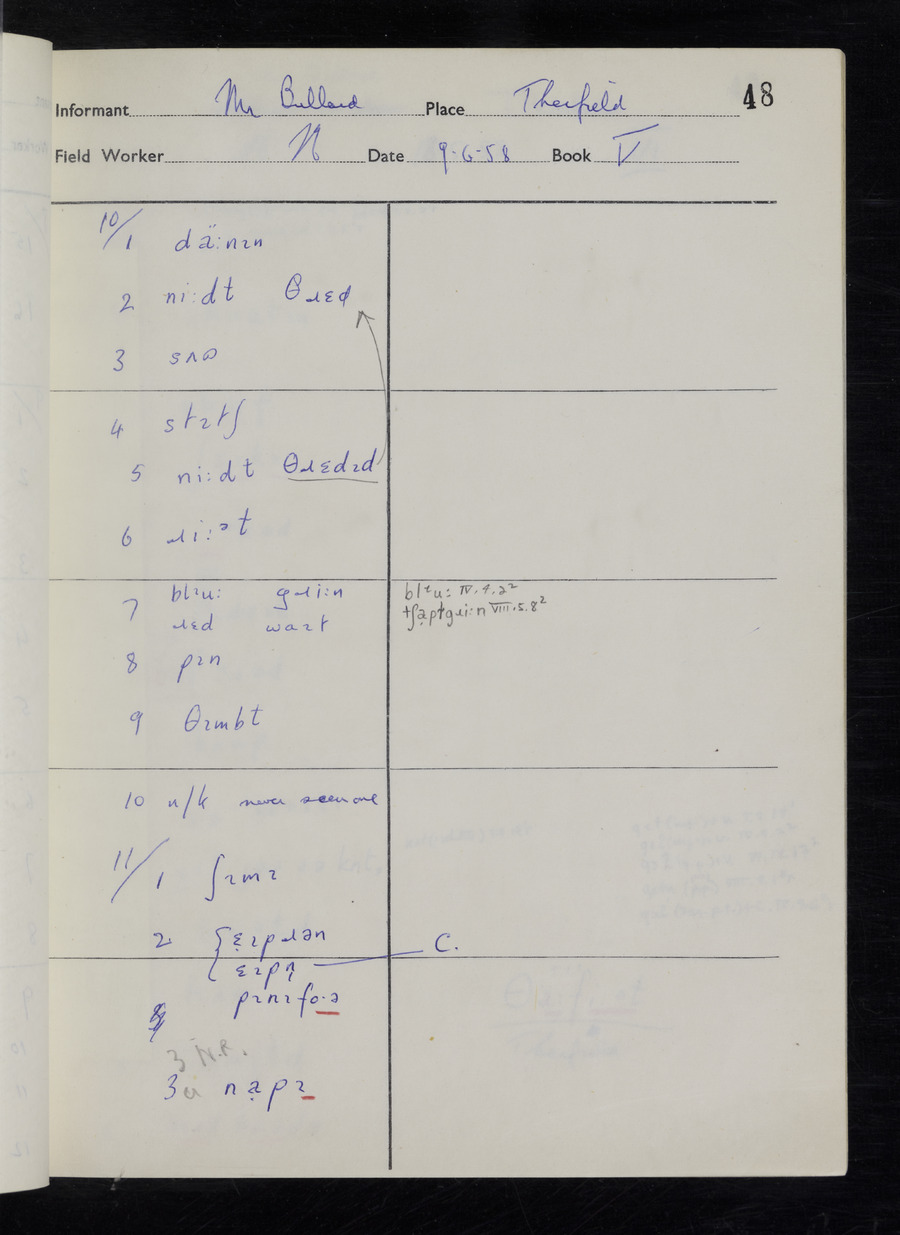 48
Informant Mr Bullard Place Therfield
Field Worker N Date 9-6-58 Book V
10/1 dä:nɪn
2 ni:dɫ θɹɛd
3 sʌɒ
4 stɪtʃ
5 ni:dɫ θɹɛdɪd
6 ɹi:ᵊɫ
7 blɪu: gɹi:n
ɹɛd waɪt
blɪu: IV.4.2²
tʃa̤ptgɹi:n VIII.5.8²
8 pɪn
9 θɪmbɫ
10 n/k never seen one
11/1 ʃɪmɪ
2 ɛ̣ɪpɹən
ɛɪpn̩
C.
pɪnɪfɔ·ə
3 N.R.
3a na̤pɪ